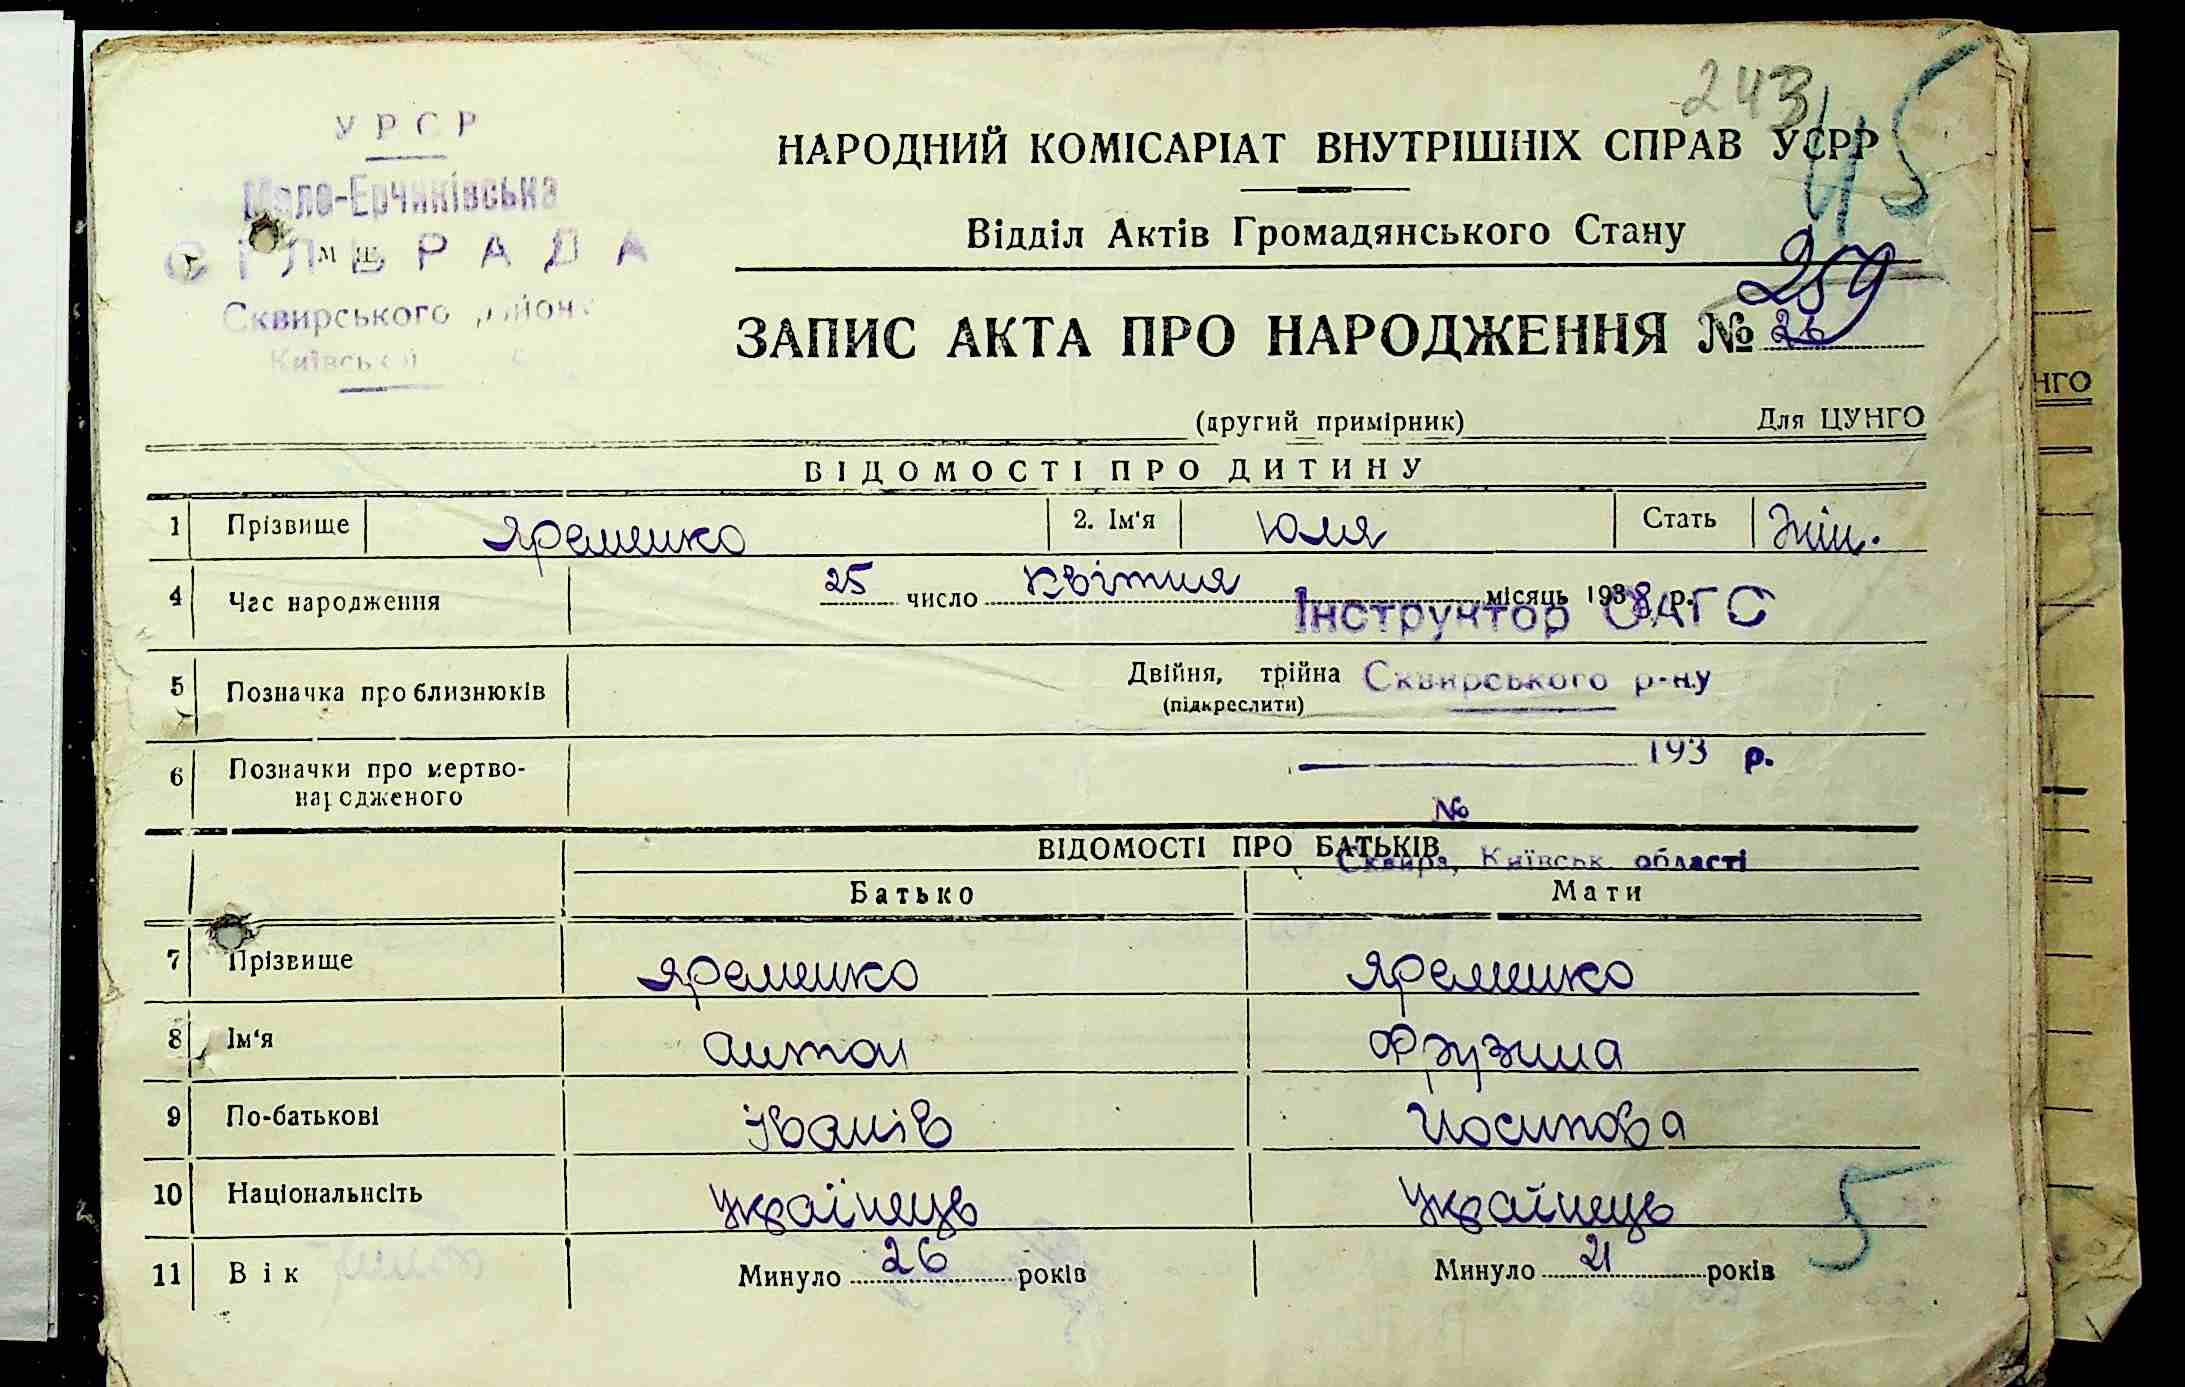 243
45
УРСР
Мало-Ерчиківська
СІЛЬРАДА
Сквирського району
Київської
НАРОДНИЙ КОМІСАРІАТ ВНУТРІШНІХ СПРАВ УСРР
Відділ Актів Громадянського Стану
259
ЗАПИС АКТА ПРО НАРОДЖЕННЯ № 26
(другий примірник) Для ЦУНГО
ВІДОМОСТІ ПРО ДИТИНУ
1 Прізвище Яременко 2. Ім'я Юля Стать Жін.
4 Час народження 25 число квітня місяць 1938 р.
Інструктор ОАГС
5 Позначка про близнюків Двійня, трійна
(підкреслити)
Сквирського р-ну
6 Позначки про мертво-
народженого
193 р.
№
ВІДОМОСТІ ПРО БАТЬКІВ
Сквира, Київськ. області
Батько Мати
7 Прізвище Яременко Яременко
8 Ім'я Антон Фрузина
9 По-батькові Іванів Йосипова
10 Національність Українець Українець
5
11 Вік Минуло 26 років Минуло 21 років
НГО